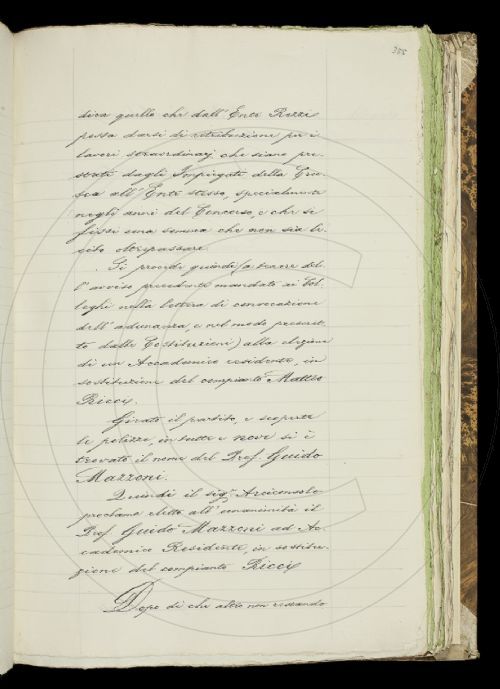 355
dica quello che dall'Ente Rezzi
possa darsi di retribuzione per i
lavori straordinarj che siano pre-
stati dagli Impiegati della Cru-
sca all'Ente stesso, specialmente
negli anni del Concorso, e che si
fissi una somma che non sia le-
cito oltrepassare.
Si procede quindi (a tenore del-
l'avviso precedente mandato ai Col-
leghi nella lettera di convocazione
dell'adunanza, e nel modo prescrit-
to dalle Costituzioni) alla elezione
di un Accademico residente, in
sostituzione del compianto Matteo
Ricci.
Girato il partito, e scoperte
le polizze, in tutte e nove si è
trovato il nome del Prof. Guido
Mazzoni.
Quindi il sigr. Arciconsolo
proclama eletto all'unanimità il
Prof. Guido Mazzoni ad Ac-
cademico Residente, in sostitu-
zione del compianto Ricci
Dopo di che altro non restando